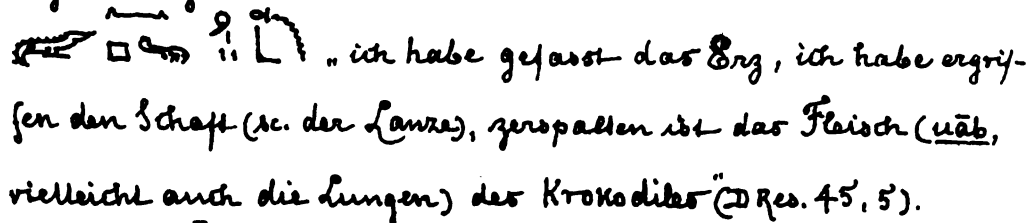 „ich habe gefasst das Erz, ich habe ergrif-
fen den Schaft (sc. der Lanze), zerspalten ist das Fleisch (uāb,
vielleicht auch die Lungen) des Krokodiles" (D Res. 45, 5).